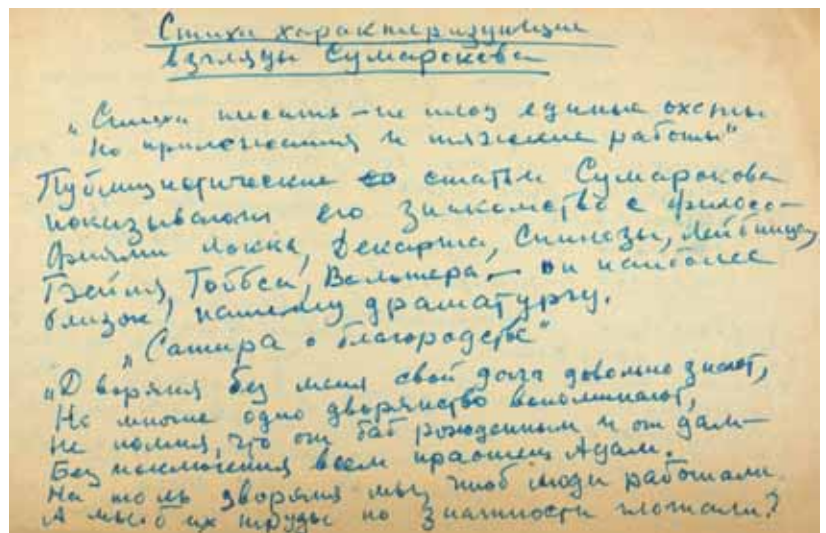 Стихи характеризующие
взгляды Сумарокова
„Стихи писать – не плод единые охоты
Но прилежания и тяжкие работы"
Публицистические статьи Сумарокова
показывают его знакомство с филосо-
фиями Локка, Декарта, Спинозы, Лейбница,
Бейля, Гоббса, Вольтера – он наиболее
близок нашему драматургу.
„Сатира о благородстве"
„Дворяня без меня свой долг довольно знают,
Но многие одно дворянство вспоминают,
Не помня, что от баб рожденным и от дам –
Без исключения всем праотец Адам.
На то ль дворяня мы, чтоб люди работали
А мы б их труды по знатности глотали?